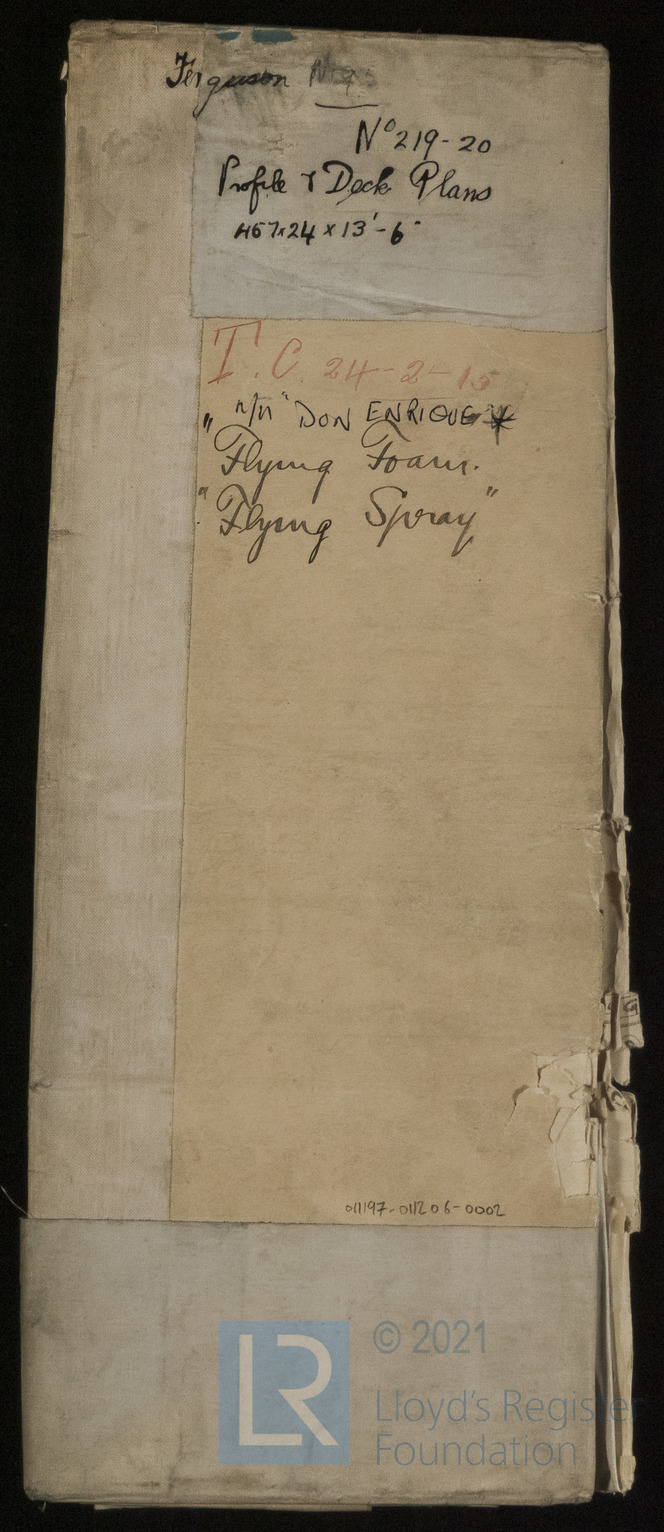 Ferguson
Nº 219-20
Profile & Deck Plans
H57x24 x 13'-6"
T.C. 24-2-15
" n/n " DON ENRIQUE *
Flying Foam.
"Flying Spray"
011197-011206-0002
© 2021
LR
Lloyd's Register
Foundation